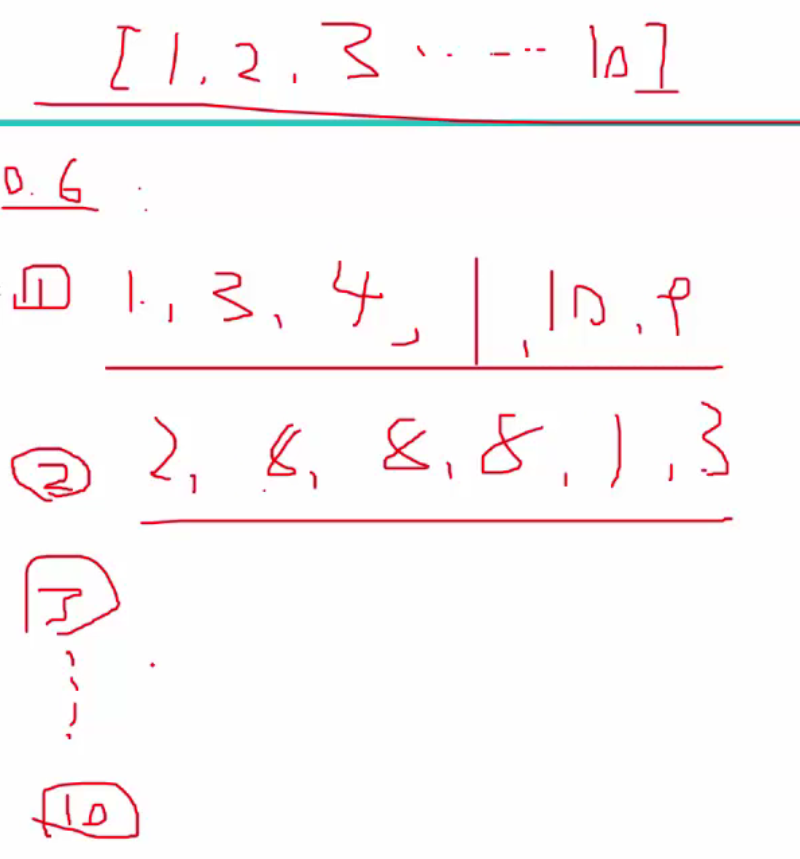 [1, 2, 3 ...... 10]
0.6 :
① 1, 3, 4, 1, 10, 9
② 2, 8, 8, 8, 1, 3
③
⋮
⑩